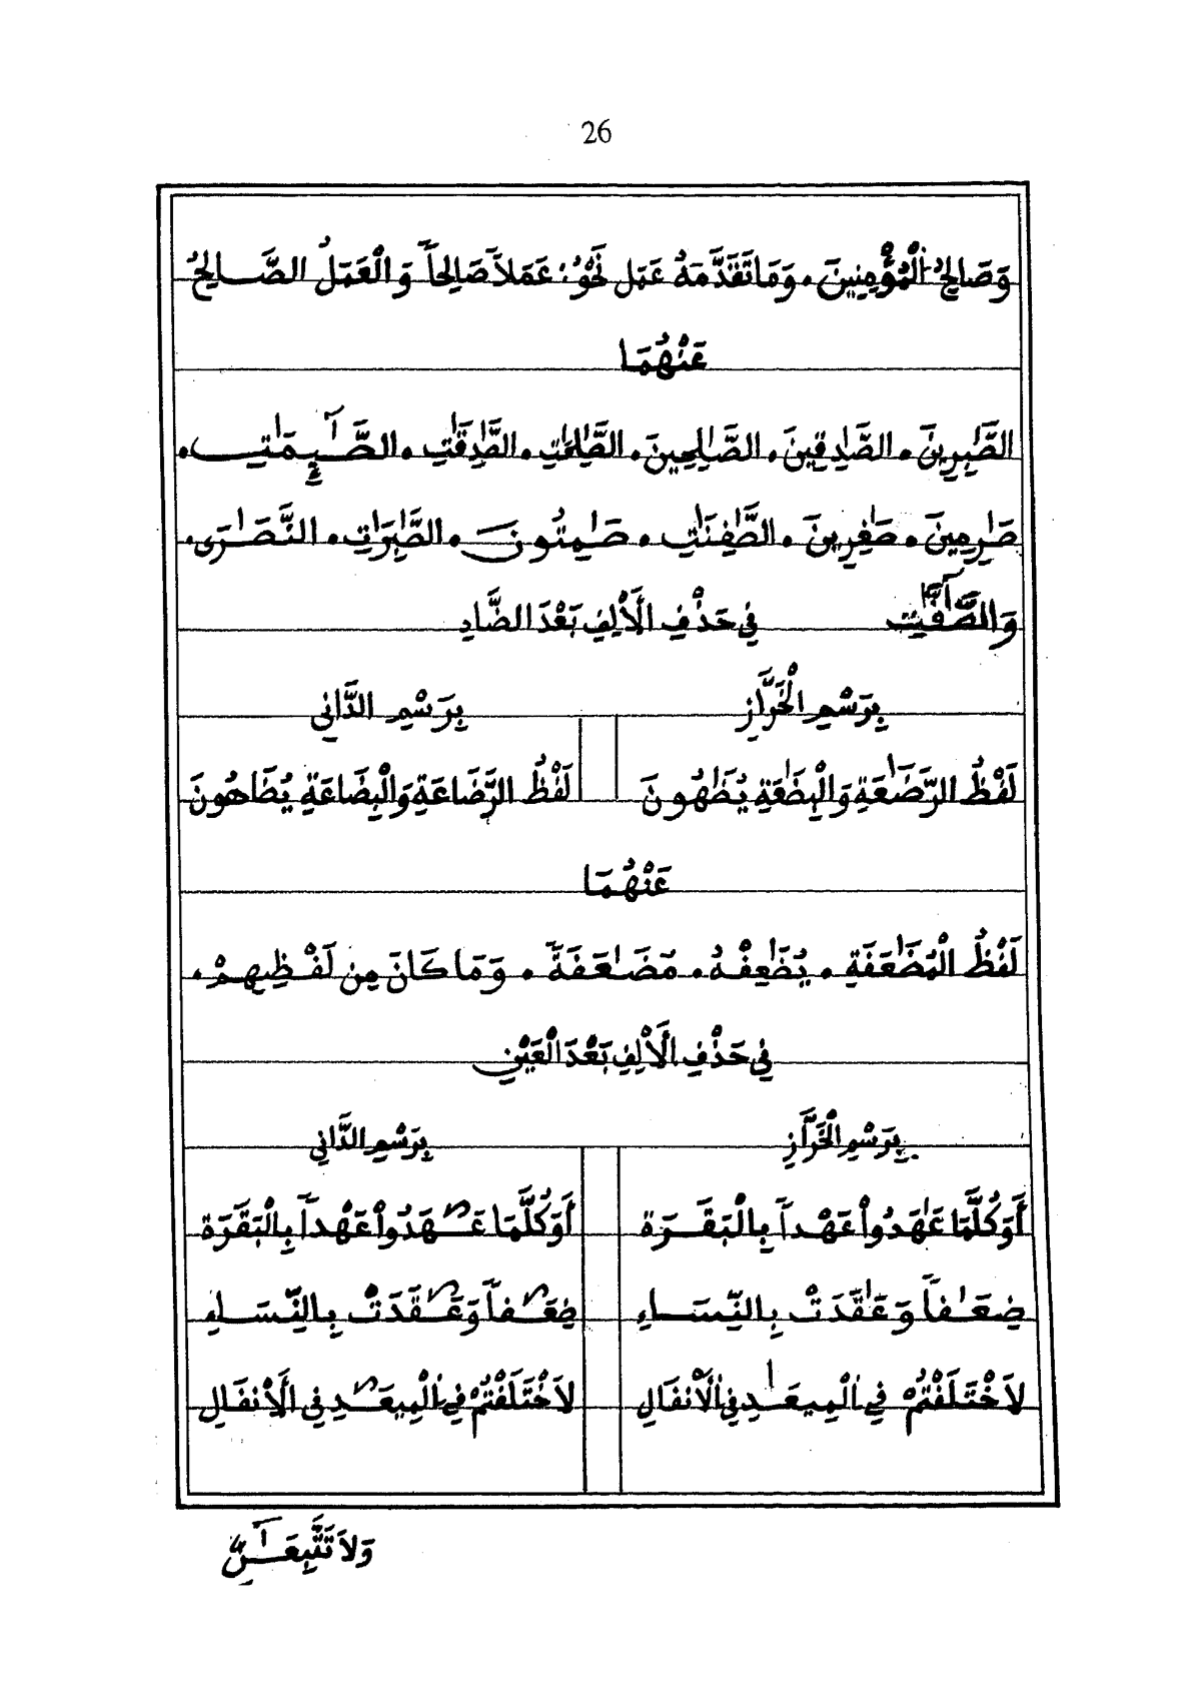 26
وَصَالِحُ الْمُؤْمِنِينَ . وَمَا تَقَدَّمَهُ عَمَل نَحْوُ : عَمَلاً صَالِحاً وَالْعَمَلُ الصَّالِحُ
عَنْهُمَا
الصَّٰبِرِينَ . الصَّٰدِقِينَ . الصَّٰلِحِينَ . الصَّٰلِحَٰتِ . الصَّٰدِقَٰتِ . الصَّٰٓئِمَٰتِ .
صَٰرِمِينَ . صَٰغِرِينَ . الصَّٰفِنَٰتِ . صَٰمِتُونَ . الصَّٰبِرَٰتِ . النَّصَٰرَىٰ .
وَالصَّٰٓفَّٰتِ فِي حَذْفِ الْأَلِفِ بَعْدَ الضَّادِ
بِرَسْمِ الْخَرَّازِ بِرَسْمِ الدَّانِي
لَفْظُ الرَّضَٰعَةِ وَالْبِضَٰعَةِ يُضَٰهُونَ لَفْظُ الرَّضَاعَةِ وَالْبِضَاعَةِ يُضَاهُونَ
عَنْهُمَا
لَفْظُ الْمُضَٰعَفَةِ . يُضَٰعِفْهُ . مُضَٰعَفَةً . وَمَا كَانَ مِن لَفْظِهِمْ .
فِي حَذْفِ الْأَلِفِ بَعْدَ الْعَيْنِ
بِرَسْمِ الْخَرَّازِ بِرَسْمِ الدَّانِي
أَوَكُلَّمَا عَٰهَدُواْ عَهْداً بِالْبَقَرَة أَوَكُلَّمَا عَٰهَدُواْ عَهْداً بِالْبَقَرَة
ضِعَٰفاً وَعَٰقَدَتْ بِالنِّسَاءِ ضِعَٰفاً وَعَٰقَدَتْ بِالنِّسَاءِ
لَاخْتَلَفْتُمْ فِي الْمِيعَٰدِ فِي الْأَنْفَالِ لَاخْتَلَفْتُمْ فِي الْمِيعَٰدِ فِي الْأَنْفَالِ
وَلاَ تَتَّبِعَٰٓنِّ